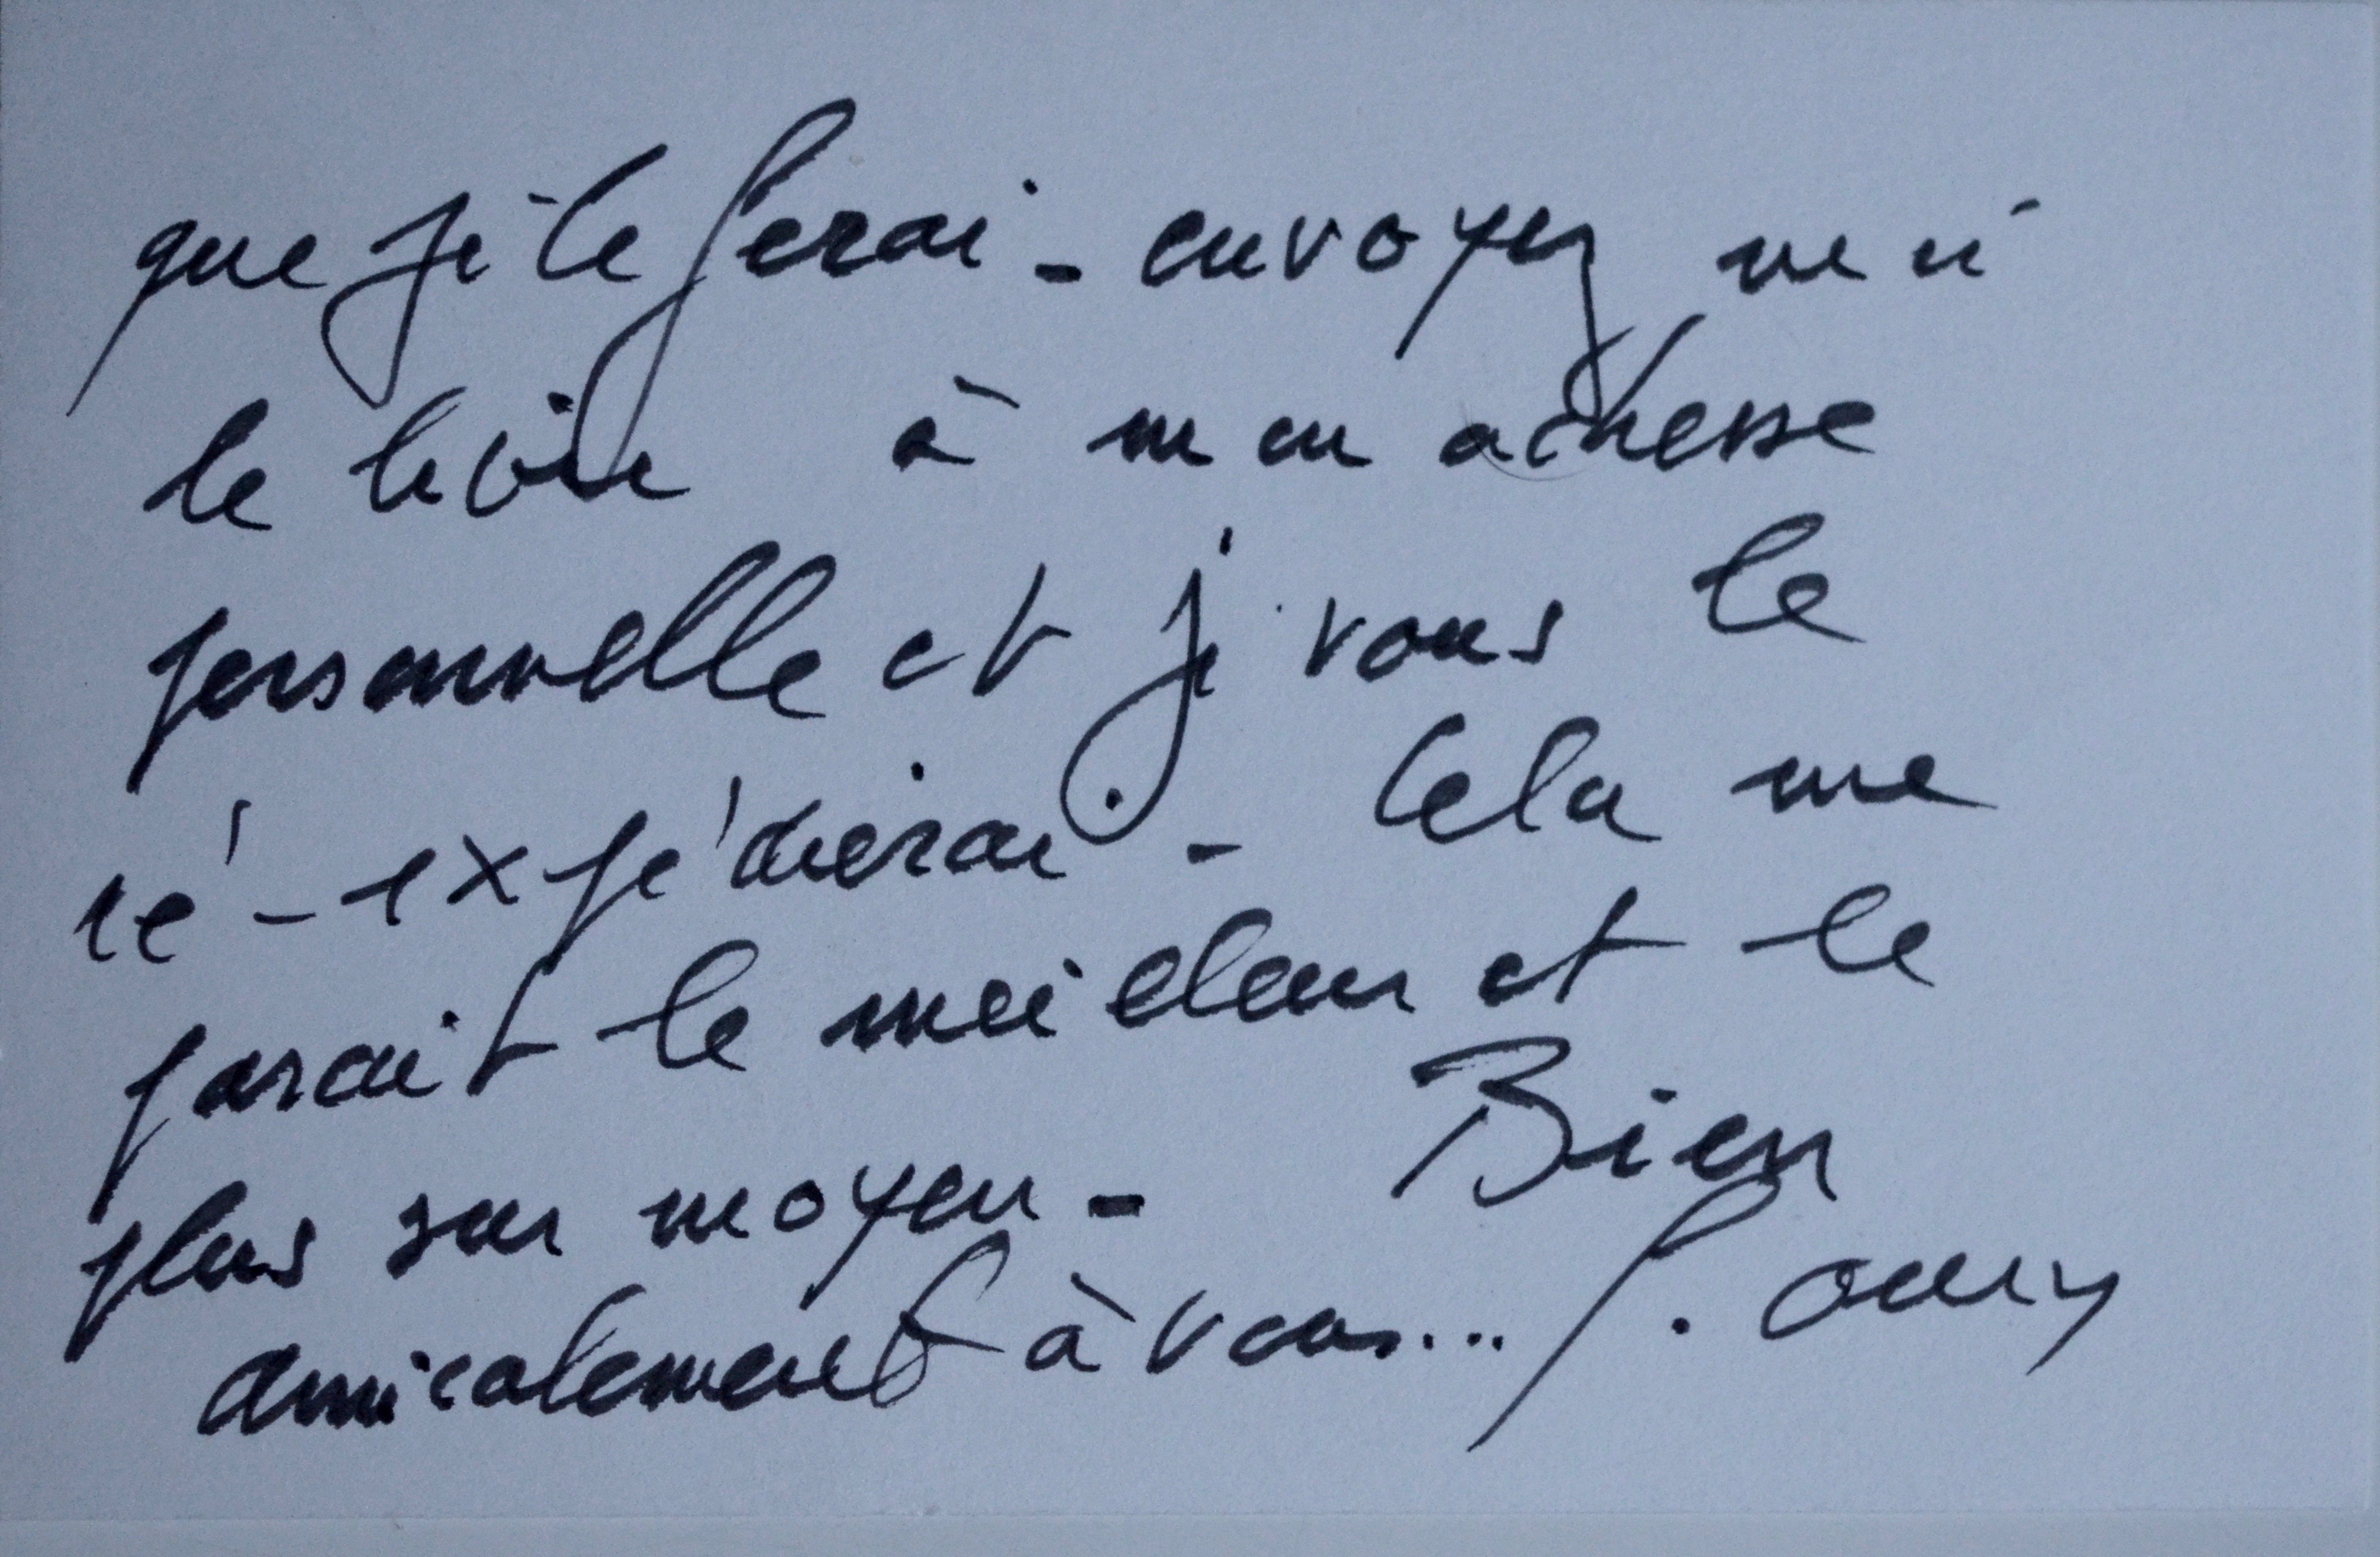 que je le ferai - envoyez moi
le livre à mon adresse
personnelle et je vous le
ré-expédierai. - Cela me
parait le meilleur et le
plus sur moyen - Bien
amicalement à vous... G. Oury